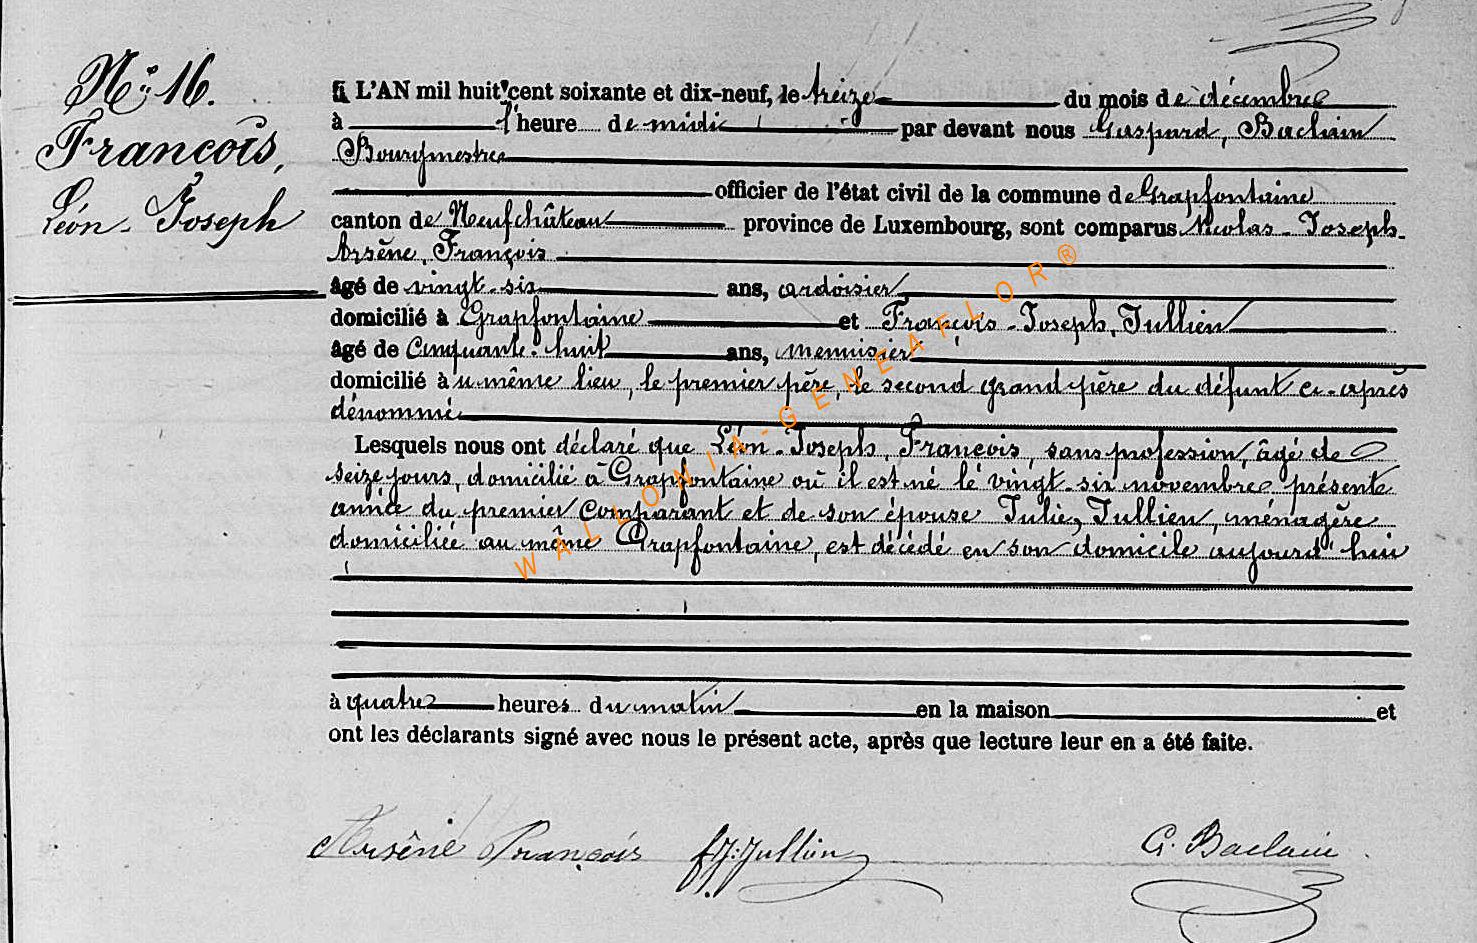 N° 16.
François,
Léon-Joseph
L'AN mil huit cent soixante et dix-neuf, le treize du mois de décembre
à l'heure de midi par devant nous Gaspard, Baclain
Bourgmestre
officier de l'état civil de la commune de Grapfontaine
canton de Neufchâteau province de Luxembourg, sont comparus Nicolas-Joseph-
Arsène, François
âgé de vingt-six ans, ardoisier
domicilié à Grapfontaine et François-Joseph, Jullien
âgé de cinquante-huit ans, menuisier
domicilié au même lieu, le premier père, le second grand-père du défunt ci-après
dénommé
Lesquels nous ont déclaré que Léon-Joseph, François, sans profession, âgé de
seize jours, domicilié à Grapfontaine où il est né le vingt-six novembre présente
année du premier comparant et de son épouse Julie, Jullien, ménagère
domiciliée au même Grapfontaine, est décédé en son domicile aujourd'hui
à quatre heures du matin en la maison et
ont les déclarants signé avec nous le présent acte, après que lecture leur en a été faite.
Arsène François f J: Jullien G. Baclain
WALLONIA-GENEAFLOR®